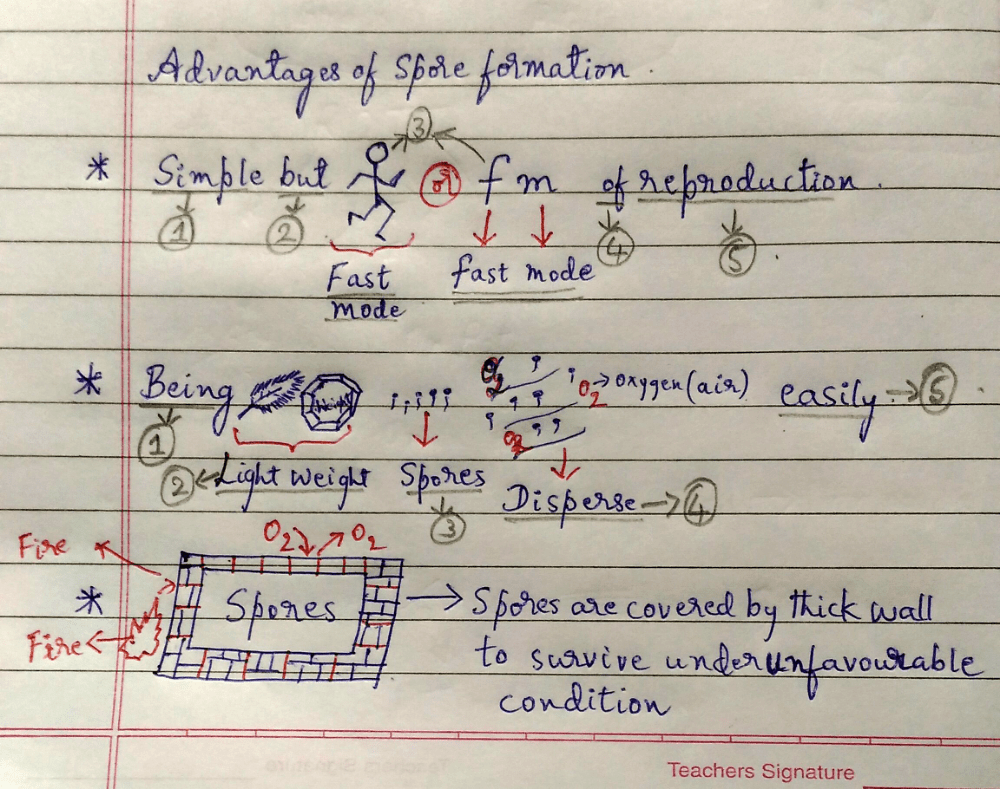 Advantages of spore formation.
③
* Simple but or f m of reproduction.
① ② ④ ⑤.
Fast mode
fast mode
* Being Weight O2 O2 → oxygen (air) easily → ⑤
O2
①
② ← Light weight Spores Disperse → ④
③
O2 O2
Fire
* Spores → Spores are covered by thick wall
Fire to survive under unfavourable
condition
Teachers Signature